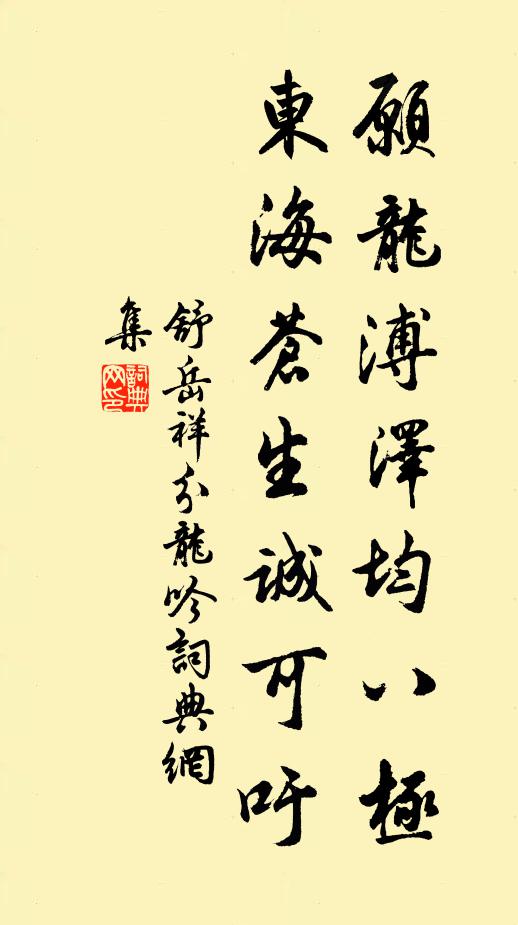 願龍溥澤均八極
東海蒼生誠可吁
舒岳祥分龍吟詞典網
集
詞典
网印